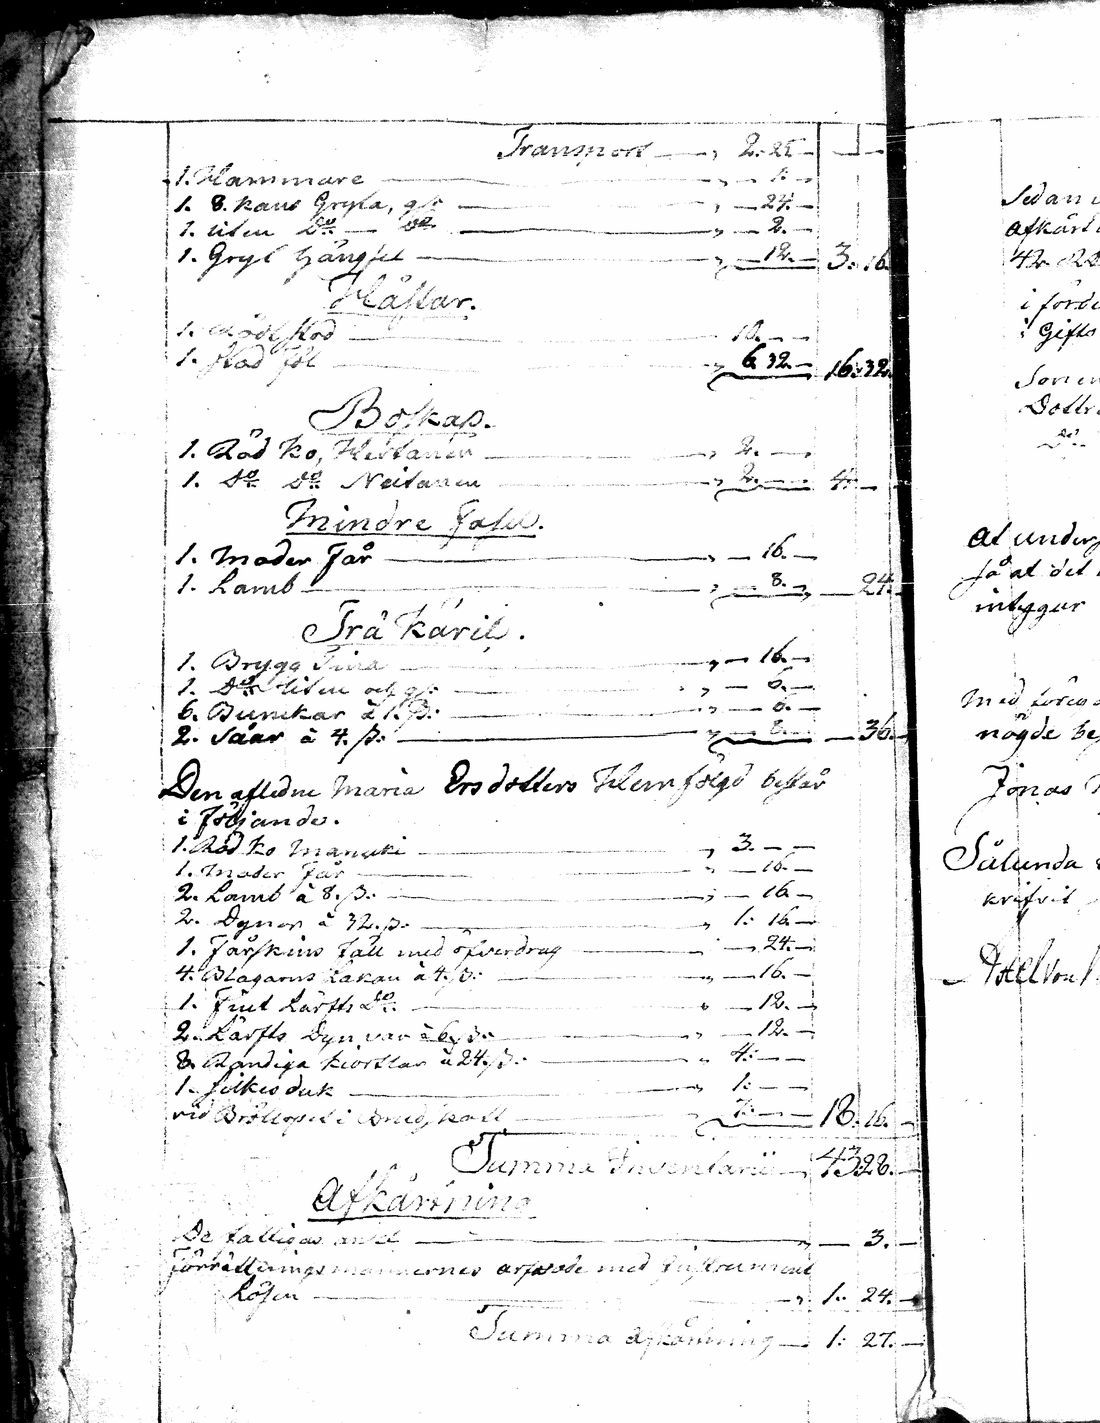 Transport — 2. 25. — —
1. Hammare — 1. —
1. 8. kans Gryta, — 24. —
1. liten Do — Do — 2. —
1. Gryt hängsel — 12. — 3. 16.
Hästar.
1. Rödt Stod — 10. — —
1. Stod föl — 6. 32. — 16. 32.
Boskap.
1. Röd Ko, — 2. — —
1. Do Do — 2. — — 4. —
Mindre Fälel.
1. Moder Får — 16. —
1. Lamb — 8. — 24.
Trä Käril.
1. Brygg Tina — 16. —
1. Do liten — 6. —
6. Bunckar à 1. ß: — 6. —
2. Såar à 4. ß: — 8. — 36.
Den aflidne Maria Ersdotters Hemfölgd består
i följande.
1. Röd Ko — 3. — —
1. Moder Får — 16. —
2. Lamb à 8. ß: — 16. —
2. Dynor à 32. ß: — 1: 16. —
1. Fårskins Fäll med öfverdrag — 24. —
4. Blagarns Lakan à 4. ß: — 16. —
1. Fint Lärfts Do — 12. —
2. Lärfts Dyn var à 6. ß: — 12. —
8. Randiga kiortlar à 24. ß: — 4: — —
1. Silkes duk — 1: — —
vid Bröllopet i — 7: — — 18. 16.
Summa Inventarii — 43. 28.
Afkårtning
De fattigas andel — 3. —
Förrättningsmännernes arfvode med Instrument
Lösen — 1: 24. —
Summa Afkårtning — 1: 27. —
Sedan
afkårt
42 Rd
i förd
i Gifto
Sonen
Dottr
Do
At under
så at det
intygar
Med föreg
nögde be
Jonas
Sålunda
krifvit
Axel von